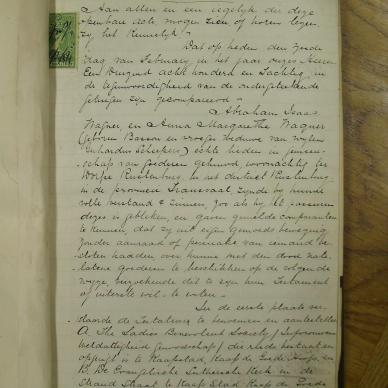 Aan allen en een iegelyk die deze
openbare acte mogen zien of horen lezen,
zy het kennelyk
Dat op heden den
dag van February, in het jaar onzes Heeren
Een Duizend acht honderd en Tachtig, in
de tegenwoordigheid van de ondergeteekende
getuigen zyn gecompareerd
Abraham Isaac
Wagner, en Anna Margaretha Wagner
(geboren en vroeger Weduwe van wylen
Scheepers) echte lieden in gemeen-
schap van goederen gehuwd, woonachtig te
Dorpe Rustenburg, in het district Rustenburg
in de provincie Transvaal, zynde by hunne
volle verstand & zinnen, zoo als by het passeeren
dezes is gebleken, en gaven gemelde comparanten
te kennen, dat zy uit eigen gemoeds beweging
zonder aanraad of van iemand be-
sloten hadden over hunne met den dood nate-
latene goederen te beschikken op de volgende
wyze, verzoekende dit te zyn hun Testament
of uiterste wil te
In de eerste plaats ver-
klaarde de Testateur te benoemen en aantestellen
A. The Ladies Benevolent Society
weldadigheid genootschap) die reeds bestaat en
opgerigt is te Kaapstad, Kaap de Goede Hoop, en
B. De Evangelische Luthersche Kerk in de
Strand Straat te Kaap Stad Kaap de Goede